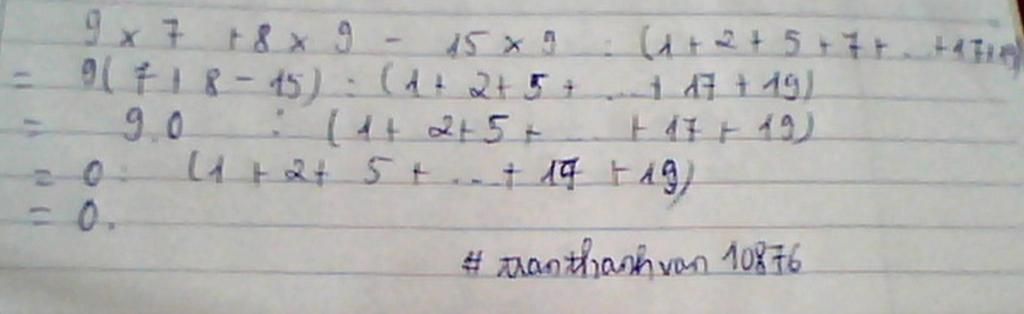 9 x 7 + 8 x 9 - 15 x 9 : (1 + 2 + 5 + 7 + ... + 17 + 19)
= 9( 7 + 8 - 15) : (1 + 2 + 5 + ... + 17 + 19)
= 9.0 : (1 + 2 + 5 + ... + 17 + 19)
= 0 : (1 + 2 + 5 + ... + 17 + 19)
= 0.
# tranthanhvan 10876